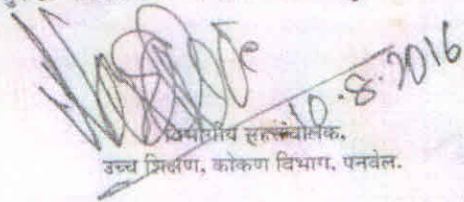 10.8.2016
विभागीय सहसंचालक,
उच्च शिक्षण, कोकण विभाग, पनवेल.